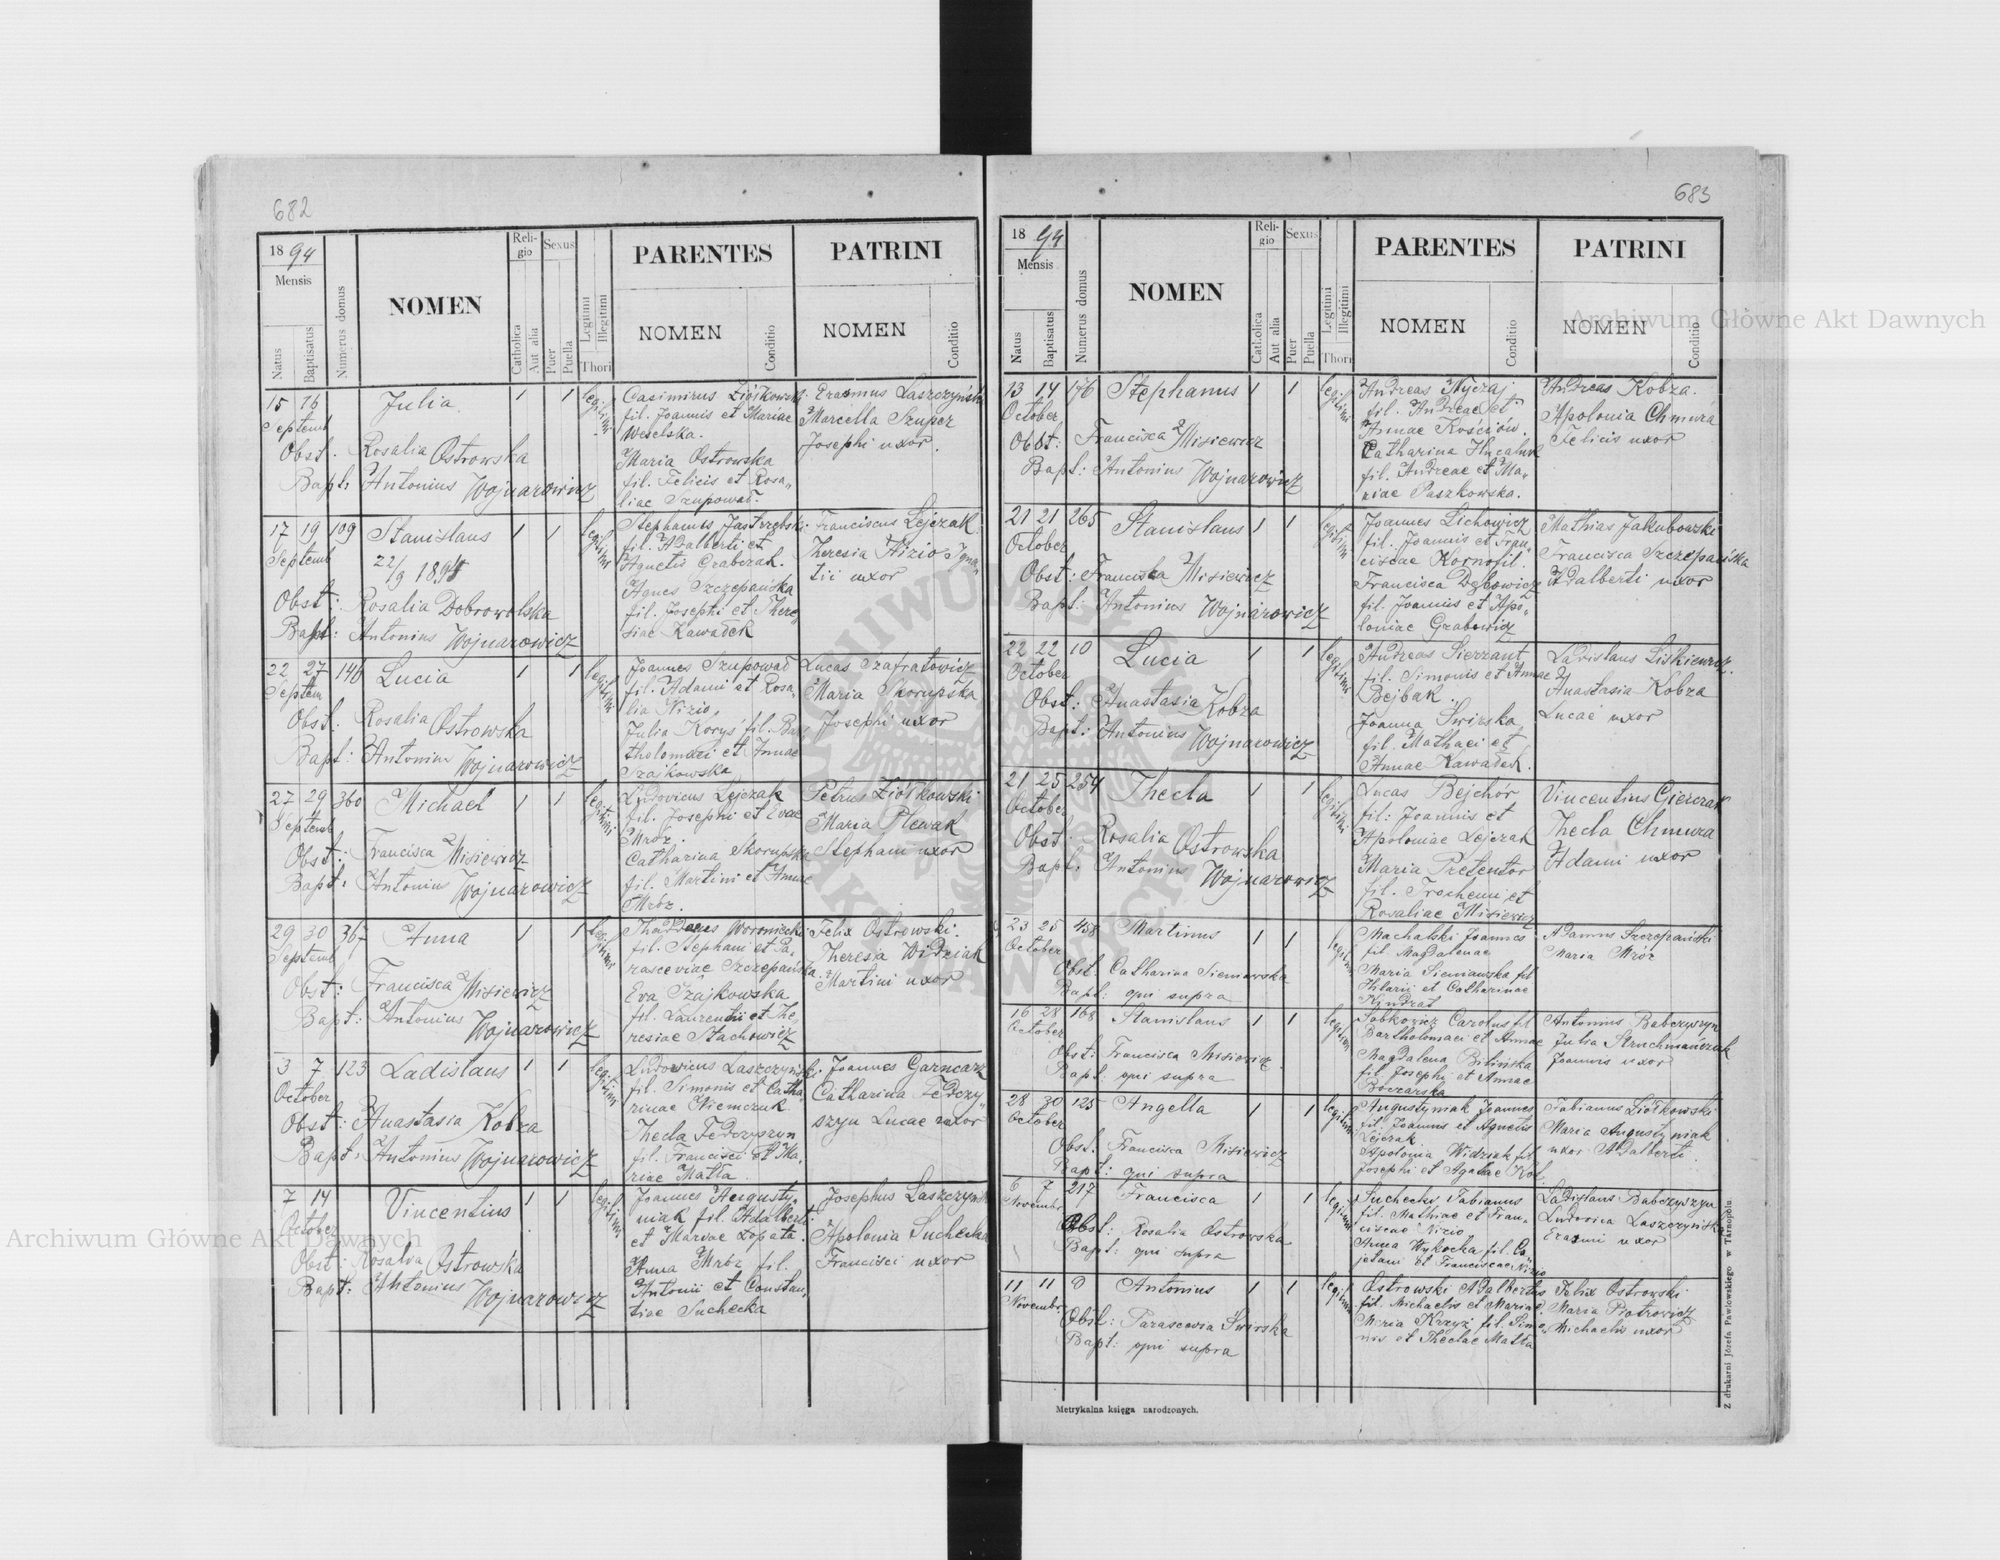 682
1894
Mensis
Natus
Baptisatus
Numerus domus
NOMEN
Religio
Catholica
Aut alia
Sexus
Puer
Puella
Legitimi
Illegitimi
Thori
PARENTES
NOMEN
Conditio
PATRINI
NOMEN
Conditio
15 16
Septemb
Julia
1 1
legitimi
Obst. Rosalia Ostrowska
Bapt: Antonius Wojnarowicz
Casimirus Ziółkowski
fil. Joannis et Mariae
Weselska.
Maria Ostrowska
fil. Felicis et Rosa„
liae Szupowad.
Erasmus Laszczyński
Marcella Szuper
Josephi uxor.
17 19 109
Septemb
Stanislaus
22/9 1894
1 1
legitimi
Obst: Rosalia Dobrowolska
Bapt: Antonius Wojnarowicz
Stephanus Jastrzębski
fil. Adalberti et
Agnetis Grabczak.
Agnes Szczepańska
fil. Josephi et There„
siae Kawadek
Franciscus Lejczak
Theresia Nizio Igna„
tii uxor
22 27 146
Septem
Lucia
1 1
legitimi
Obst. Rosalia Ostrowska
Bapt: Antonius Wojnarowicz
Joannes Szupowad
fil. Adami et Rosa„
lia Nizio,
Julia Korys fil. Bar„
tholomaei et Annae
Szajkowska
Lucas Szafratowicz
Maria Skorupska
Josephi uxor
27 29 360
Septemb
Michael
1 1
legitimi
Obst: Francisca Misiewicz
Bapt: Antonius Wojnarowicz
Ludovicus Lejczak
fil. Josephi et Evae
Mróz.
Catharina Skorupska
fil. Martini et Annae
Mróz.
Petrus Ziółkowski
Maria Plewak
Stephani uxor
29 30 367
Septemb
Anna
1 1
legitimi
Obst: Francisca Misiewicz
Bapt: Antonius Wojnarowicz
Thaddaeus Woroniecki
fil. Stephani et Pa„
rasceviae Szczepańska
Eva Szajkowska
fil. Laurentii et The„
resiae Stachowicz
Felix Ostrowski.
Theresia Widziak
Martini uxor
3 7 123
October
Ladislaus
1 1
legitimi
Obst: Anastasia Kobza
Bapt: Antonius Wojnarowicz
Ludowicus Laszczyński
fil. Simonis et Catha„
rinae Niemczuk
Thecla Fedczyszyn
fil. Francisci et Ma„
riae Matla.
Joannes Garncarz
Catharina Fedczy„
szyn Lucae uxor
7 14
October
Vincentius
1 1
legitimi
Obst: Rosalia Ostrowska
Bapt: Antonius Wojnarowicz
Joannes Augusty„
niak fil. Adalberti
et Mariae Łopata.
Anna Mróz fil.
Antonii et Constan„
tiae Suchecka
Josephus Laszczyński
Apolonia Suchecka
Francisci uxor
683
1894
Mensis
Natus
Baptisatus
Numerus domus
NOMEN
Religio
Catholica
Aut alia
Sexus
Puer
Puella
Legitimi
Illegitimi
Thori
PARENTES
NOMEN
Conditio
PATRINI
NOMEN
Conditio
13 14 176
October
Stephanus
1 1
legitimi
Obst: Francisca Misiewicz
Bapt: Antonius Wojnarowicz
fil. Andreae et
Annae Kościów.
fil. Andreae et Ma„
riae Paszkowska.
Andreas Kobza.
Apolonia Chmura
Felicis uxor
21 21 265
October
Stanislaus
1 1
legitimi
Obst: Francisca Misiewicz
Bapt: Antonius Wojnarowicz
Joannes Lichowicz
fil. Joannis et Fran„
ciscae Kornofil.
Francisca Dębowicz
fil. Joannis et Apo„
loniae Grabowicz
Mathias Jakubowski
Francisca Szczepańska
Adalberti uxor
22 22 10
October
Lucia
1 1
legitimi
Obst: Anastasia Kobza
Bapt: Antonius Wojnarowicz
Andreas Sierzant
fil. Simonis et Annae
Bejbak.
Joanna Swirska
fil. Mathaei et
Annae Kawadek.
Ladislaus Liskiewicz.
Anastasia Kobza
Lucae uxor
21 25 254
October
Thecla
1 1
legitimi
Obst. Rosalia Ostrowska
Bapt: Antonius Wojnarowicz
Lucas Bejchor
fil: Joannis et
Apoloniae Lejczak
Maria Pretentor
fil. Trochemi et
Rosaliae Misiewicz
Vincentius Gierczak
Thecla Chmura
Adami uxor
23 25 458
October
Martinus
1 1
legitimi
Obst. Catharina Sieniawska
Bapt: qui supra
Machalski Joannes
fil. Magdalenae
Maria Sieniawska fil
Hilarii et Catharinae
Kindrat
Adamus Szczepański
Maria Mróz
16 28 168
October
Stanislaus
1 1
legitimi
Obst: Francisca Misiewicz
Bapt: qui supra
Sobkowicz Carolus fil
Bartholomaei et Annae
Magdalena Bilińska
fil Josephi et Annae
Boczarska
Antonius Babczyszyn
Julia Struchmańczuk
Joannis uxor
28 30 125
October
Angella
1 1
legitimi
Obst. Francisca Misiewicz
Bapt: qui supra
Augustyniak Joannes
fil. Joannis et Agnetis
Lejczak
Apolonia Widziak fil
Josephi et Agatae Kol.
Fabianus Ziółkowski
Maria Augustyniak
uxor Adalberti
6 7 217
Novembr
Francisca
1 1
legitimi
Obst: Rosalia Ostrowska
Bapt: qui supra
Suchecki Fabianus
fil. Mathiae et Fran„
ciscae Nizio
Anna Wykocka fil. Ca„
jetani et Franciscae Nizio
Ladislaus Babczyszyn
Ludovica Laszczyńska
Erazmi uxor
11 11 9
Novembr
Antonius
1 1
legitimi
Obst: Parascevia Swirska
Bapt: qui supra
Ostrowski Adalbertus
fil. Michaelis et Mariae
Maria Krzyż fil Simo„
nis et Theclae Matla
Felix Ostrowski
Maria Piotrowicz
Michaelis uxor
Metrykalna księga narodzonych.
Z drukarni Józefa Pawłowskiego w Tarnopolu
Archiwum Główne Akt Dawnych
Archiwum Główne Akt Dawnych
ARCHIWUM GŁÓWNE AKT DAWNYCH